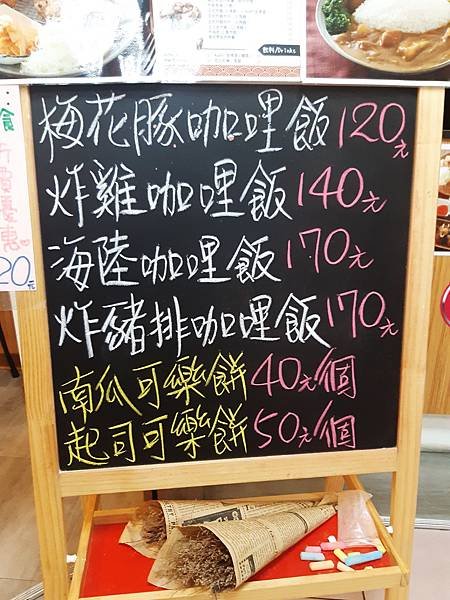 飲料/Drinks
梅花豚咖哩飯120元
炸雞咖哩飯140元
海陸咖哩飯170元
炸豬排咖哩飯170元
南瓜可樂餅40元/個
起司可樂餅50元/個
食
費優惠
20元